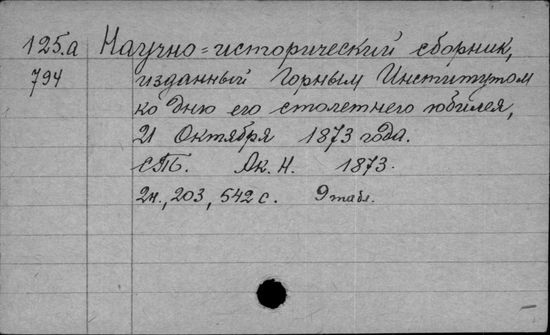 125.а Научно-исторический сборник,
794 изданный Горным Институтом
ко дню его столетнего юбилея,
21 Октября 1873 года.
СПБ. Ак. Н. 1873.
2н., 203, 542 с. 9 табл.